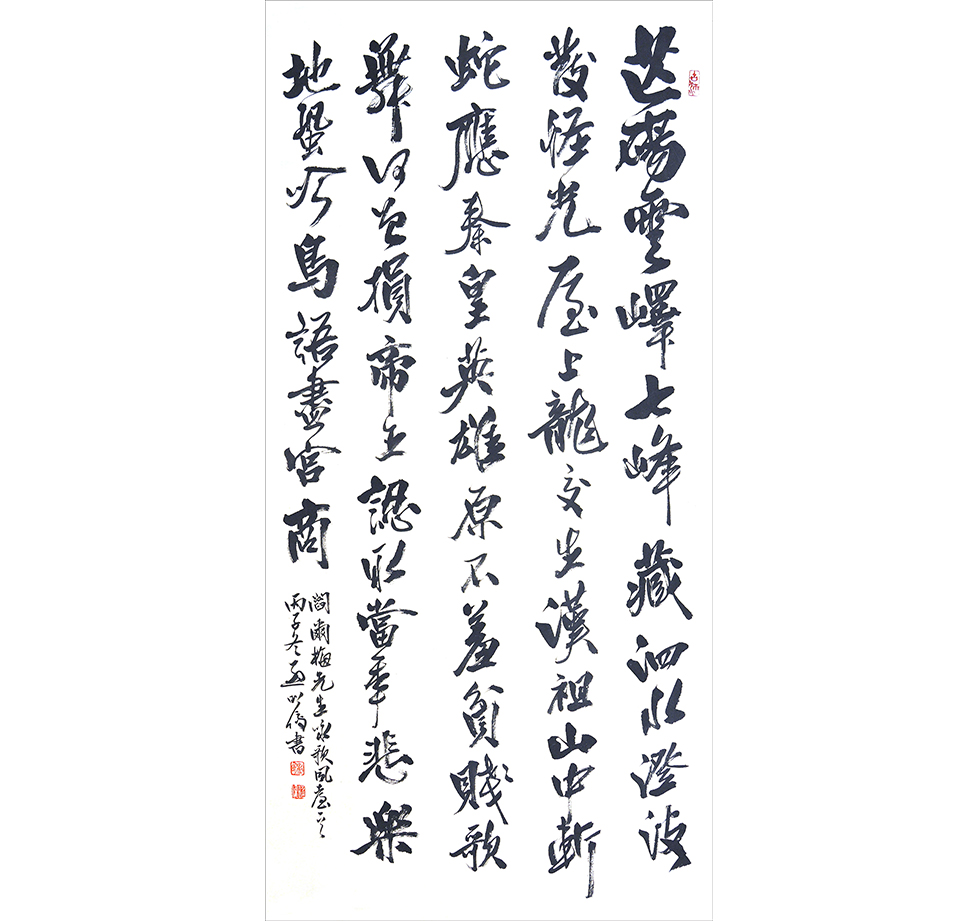 芒碭雲嶧七峰藏泗水澄波
發怪光屋上龍交生漢祖山中斬
蛇應秦皇英雄原不羞貧賤歌
舞何曾損帝王認取當年悲樂
地蛩吟鳥語盡宮商
閻爾梅先生咏歌風臺一首
丙子冬 書